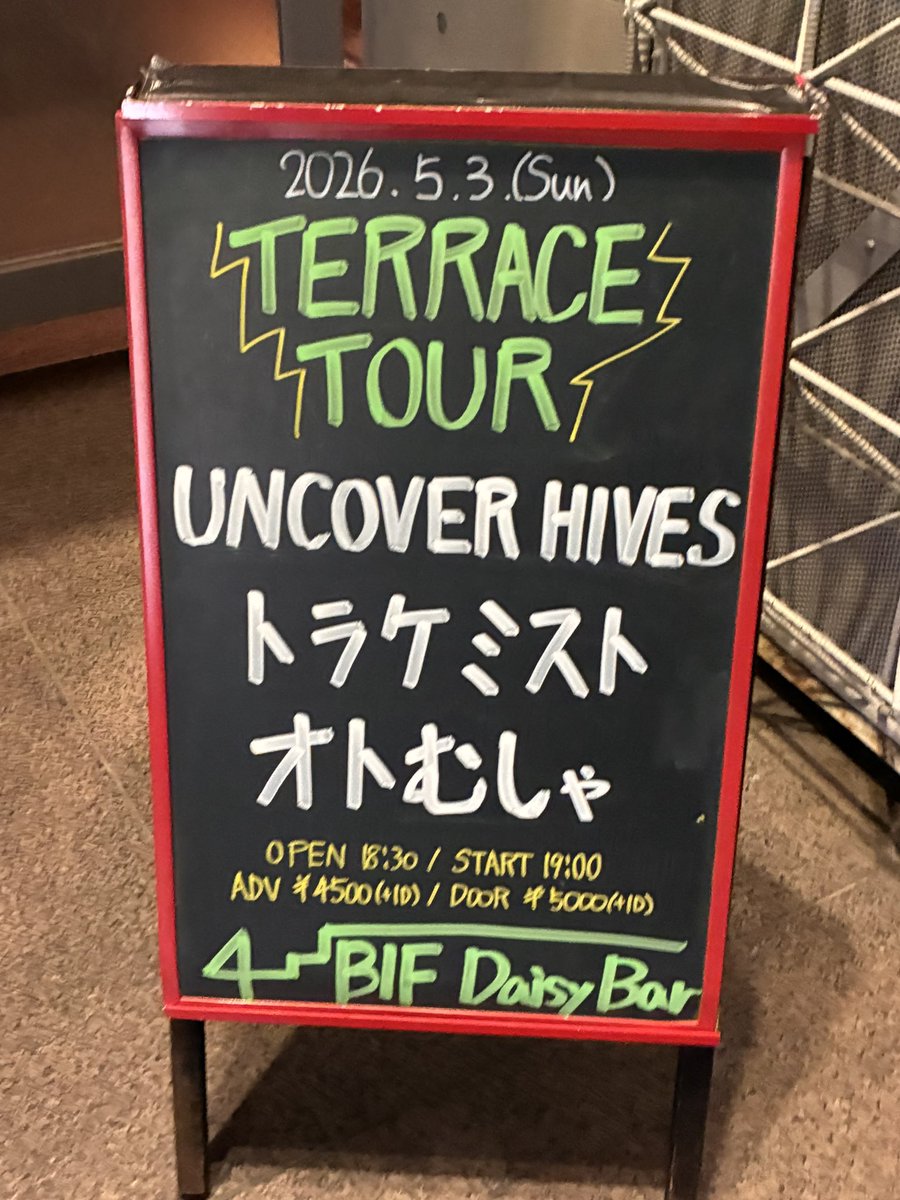 2026.5.3.(Sun)
TERRACE
TOUR
UNCOVER HIVES
トラケミスト
オトむしゃ
OPEN 18:30 / START 19:00
ADV ¥4500(+1D) / DOOR ¥5000(+1D)
B1F Daisy Bar